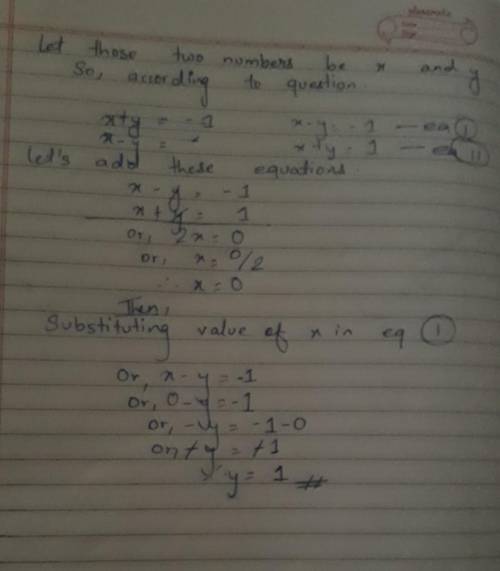 Let those two numbers be x and y
So, according to question
x+y = -1 x-y = -1 — eq (I)
x-y = x+y = 1 — eq (II)
Let's add these equations.
x - y = -1
x + y = 1
or, 2x = 0
or, x = 0/2
∴ x = 0
Then,
Substituting value of x in eq (I)
or, x - y = -1
or, 0 - y = -1
or, -y = -1-0
or, +y = +1
y = 1 #